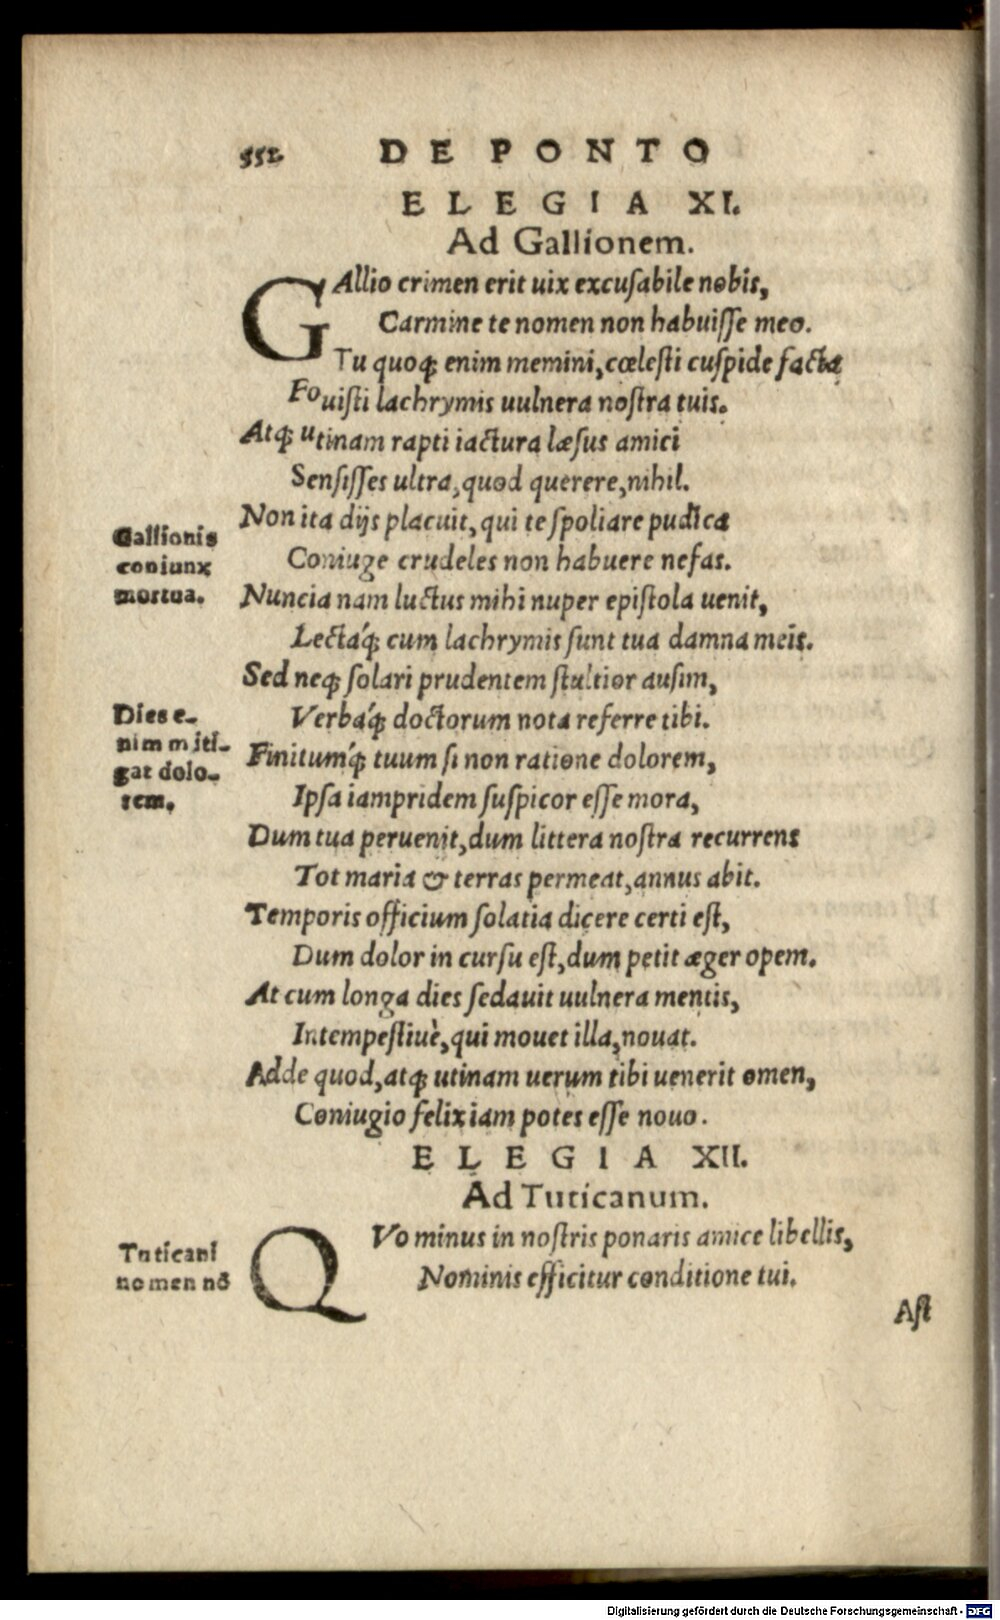 552 DE PONTO
ELEGIA XI.
Ad Gallionem.
GAllio crimen erit uix excuſabile nobis,
Carmine te nomen non habuiſſe meo.
Tu quoqꝫ enim memini, cœleſti cuſpide facta
Fouiſti lachrymis uulnera noſtra tuis.
Atqꝫ utinam rapti iactura læſus amici
Senſiſſes ultra, quod querere, nihil.
Non ita dijs placuit, qui te ſpoliare pudica
Coniuge crudeles non habuere nefas.
Gallionis
coniunx
mortua.
Nuncia nam luctus mihi nuper epiſtola uenit,
Lectáqꝫ cum lachrymis ſunt tua damna meis.
Sed neqꝫ ſolari prudentem ſtultior auſim,
Verbáqꝫ doctorum nota referre tibi.
Dies e-
nim miti-
gat dolo-
rem.
Finitumqꝫ́ tuum ſi non ratione dolorem,
Ipſa iampridem ſuſpicor eſſe mora,
Dum tua peruenit, dum littera noſtra recurrens
Tot maria & terras permeat, annus abit.
Temporis officium ſolatia dicere certi eſt,
Dum dolor in curſu eſt, dum petit æger opem.
At cum longa dies ſedauit uulnera mentis,
Intempeſtiuè, qui mouet illa, nouat.
Adde quod, atqꝫ utinam uerum tibi uenerit omen,
Coniugio felix iam potes eſſe nouo.
ELEGIA XII.
Ad Tuticanum.
Tuticani
nomen nõ
QVo minus in noſtris ponaris amice libellis,
Nominis efficitur conditione tui.
Aſt
Digitalisierung gefördert durch die Deutsche Forschungsgemeinschaft - DFG